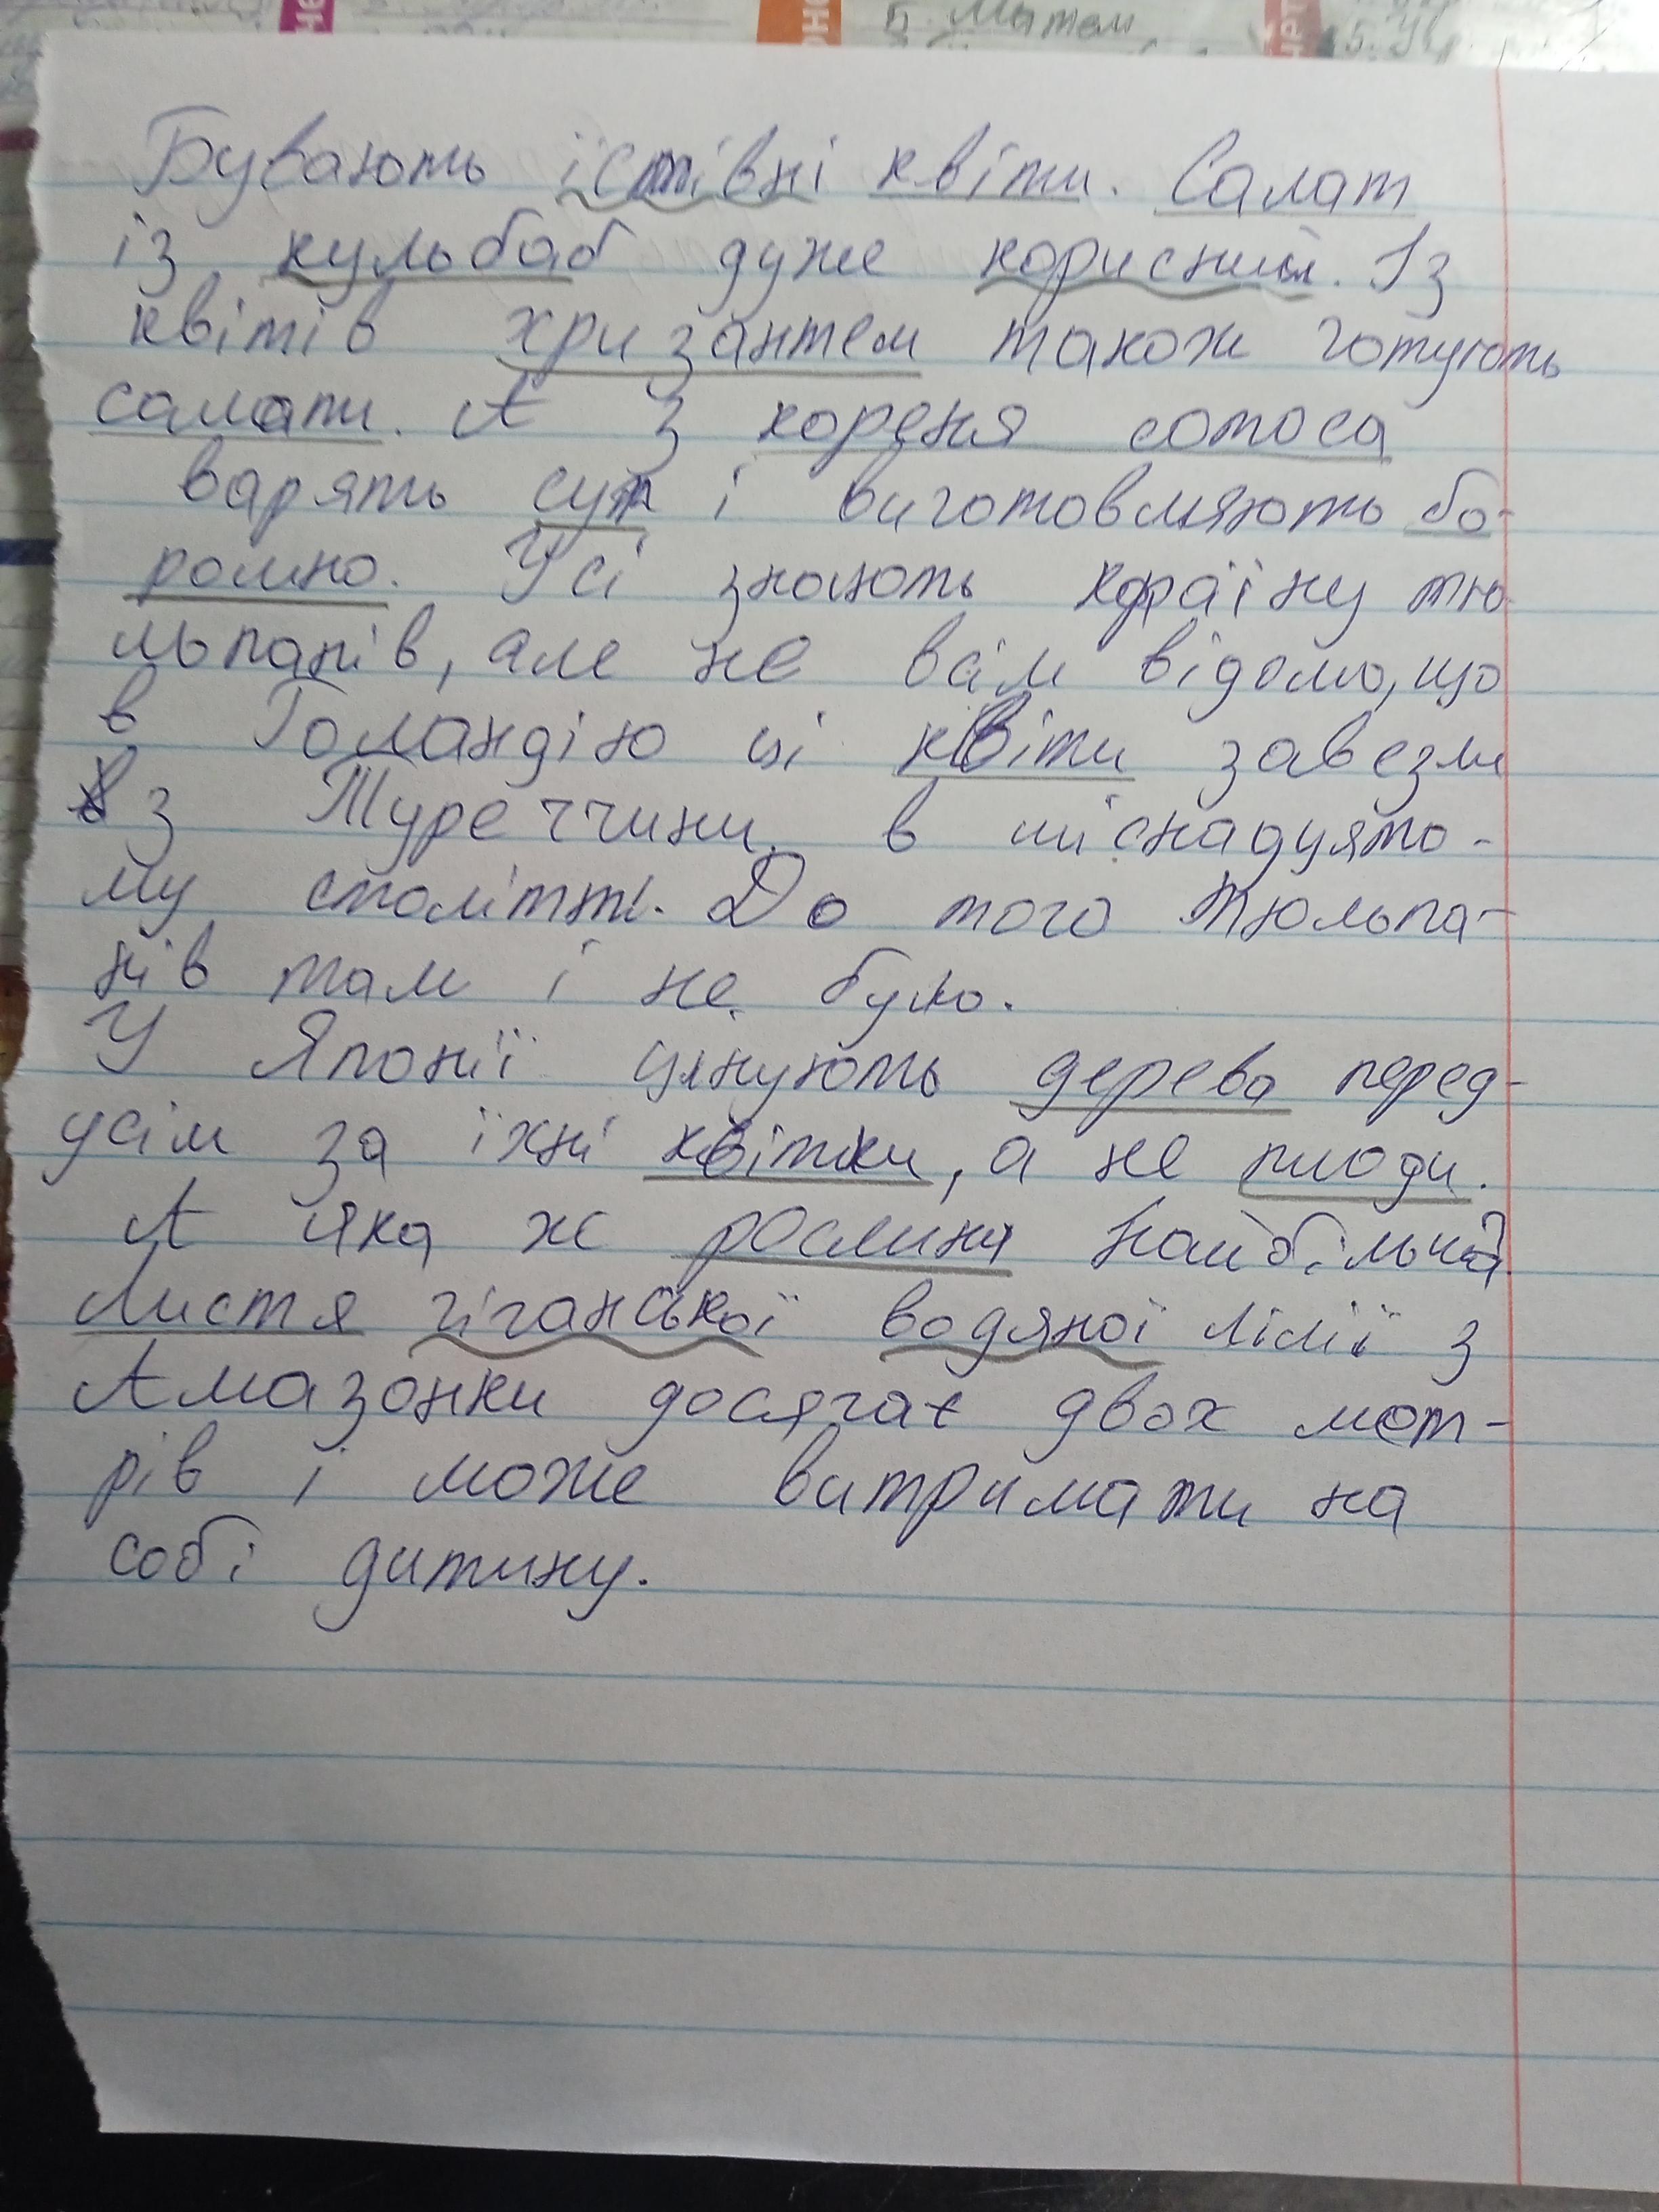 Б. Матем
5. Ук
Бувають їстівні квіти. Салат
із кульбаб дуже корисний. Із
квітів хризантем також готують
салати. А з кореня сотоса
варять суп і виготовляють бо-
рошно. Усі знають країну тю-
льпанів, але не всім відомо, що
в Голандію ці квіти завезли
з Туреччини в шіснадцято-
му столітті. До того тюльпа-
нів там і не було.
У Японії цінують дерева перед-
усім за їхні квітки, а не плоди.
А яка ж рослина найбільша?
Листя гіганської водяної лілії з
Амазонки досягає двох мет-
рів і може витримати на
собі дитину.